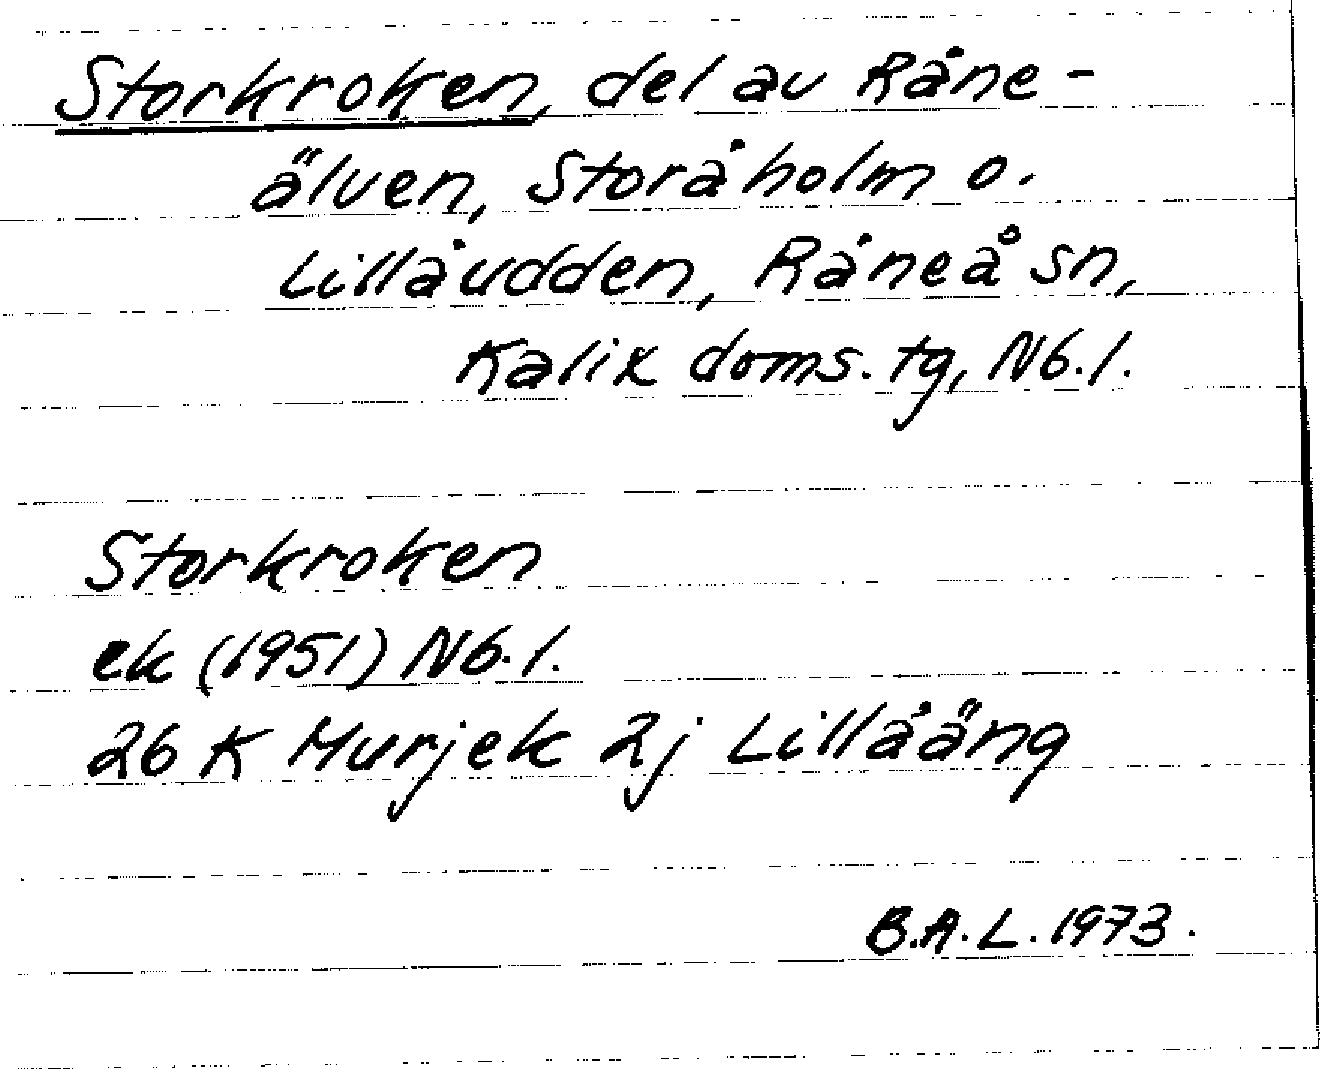 Storkroken, del av Råne-
älven, Storåholm o.
Lillåudden, Råneå sn,
Kalix doms. tg, Nb. l.
Storkroken
ek (1951) Nb. l.
26 K Murjek 2j Lillååäng
B.A.L. 1973.